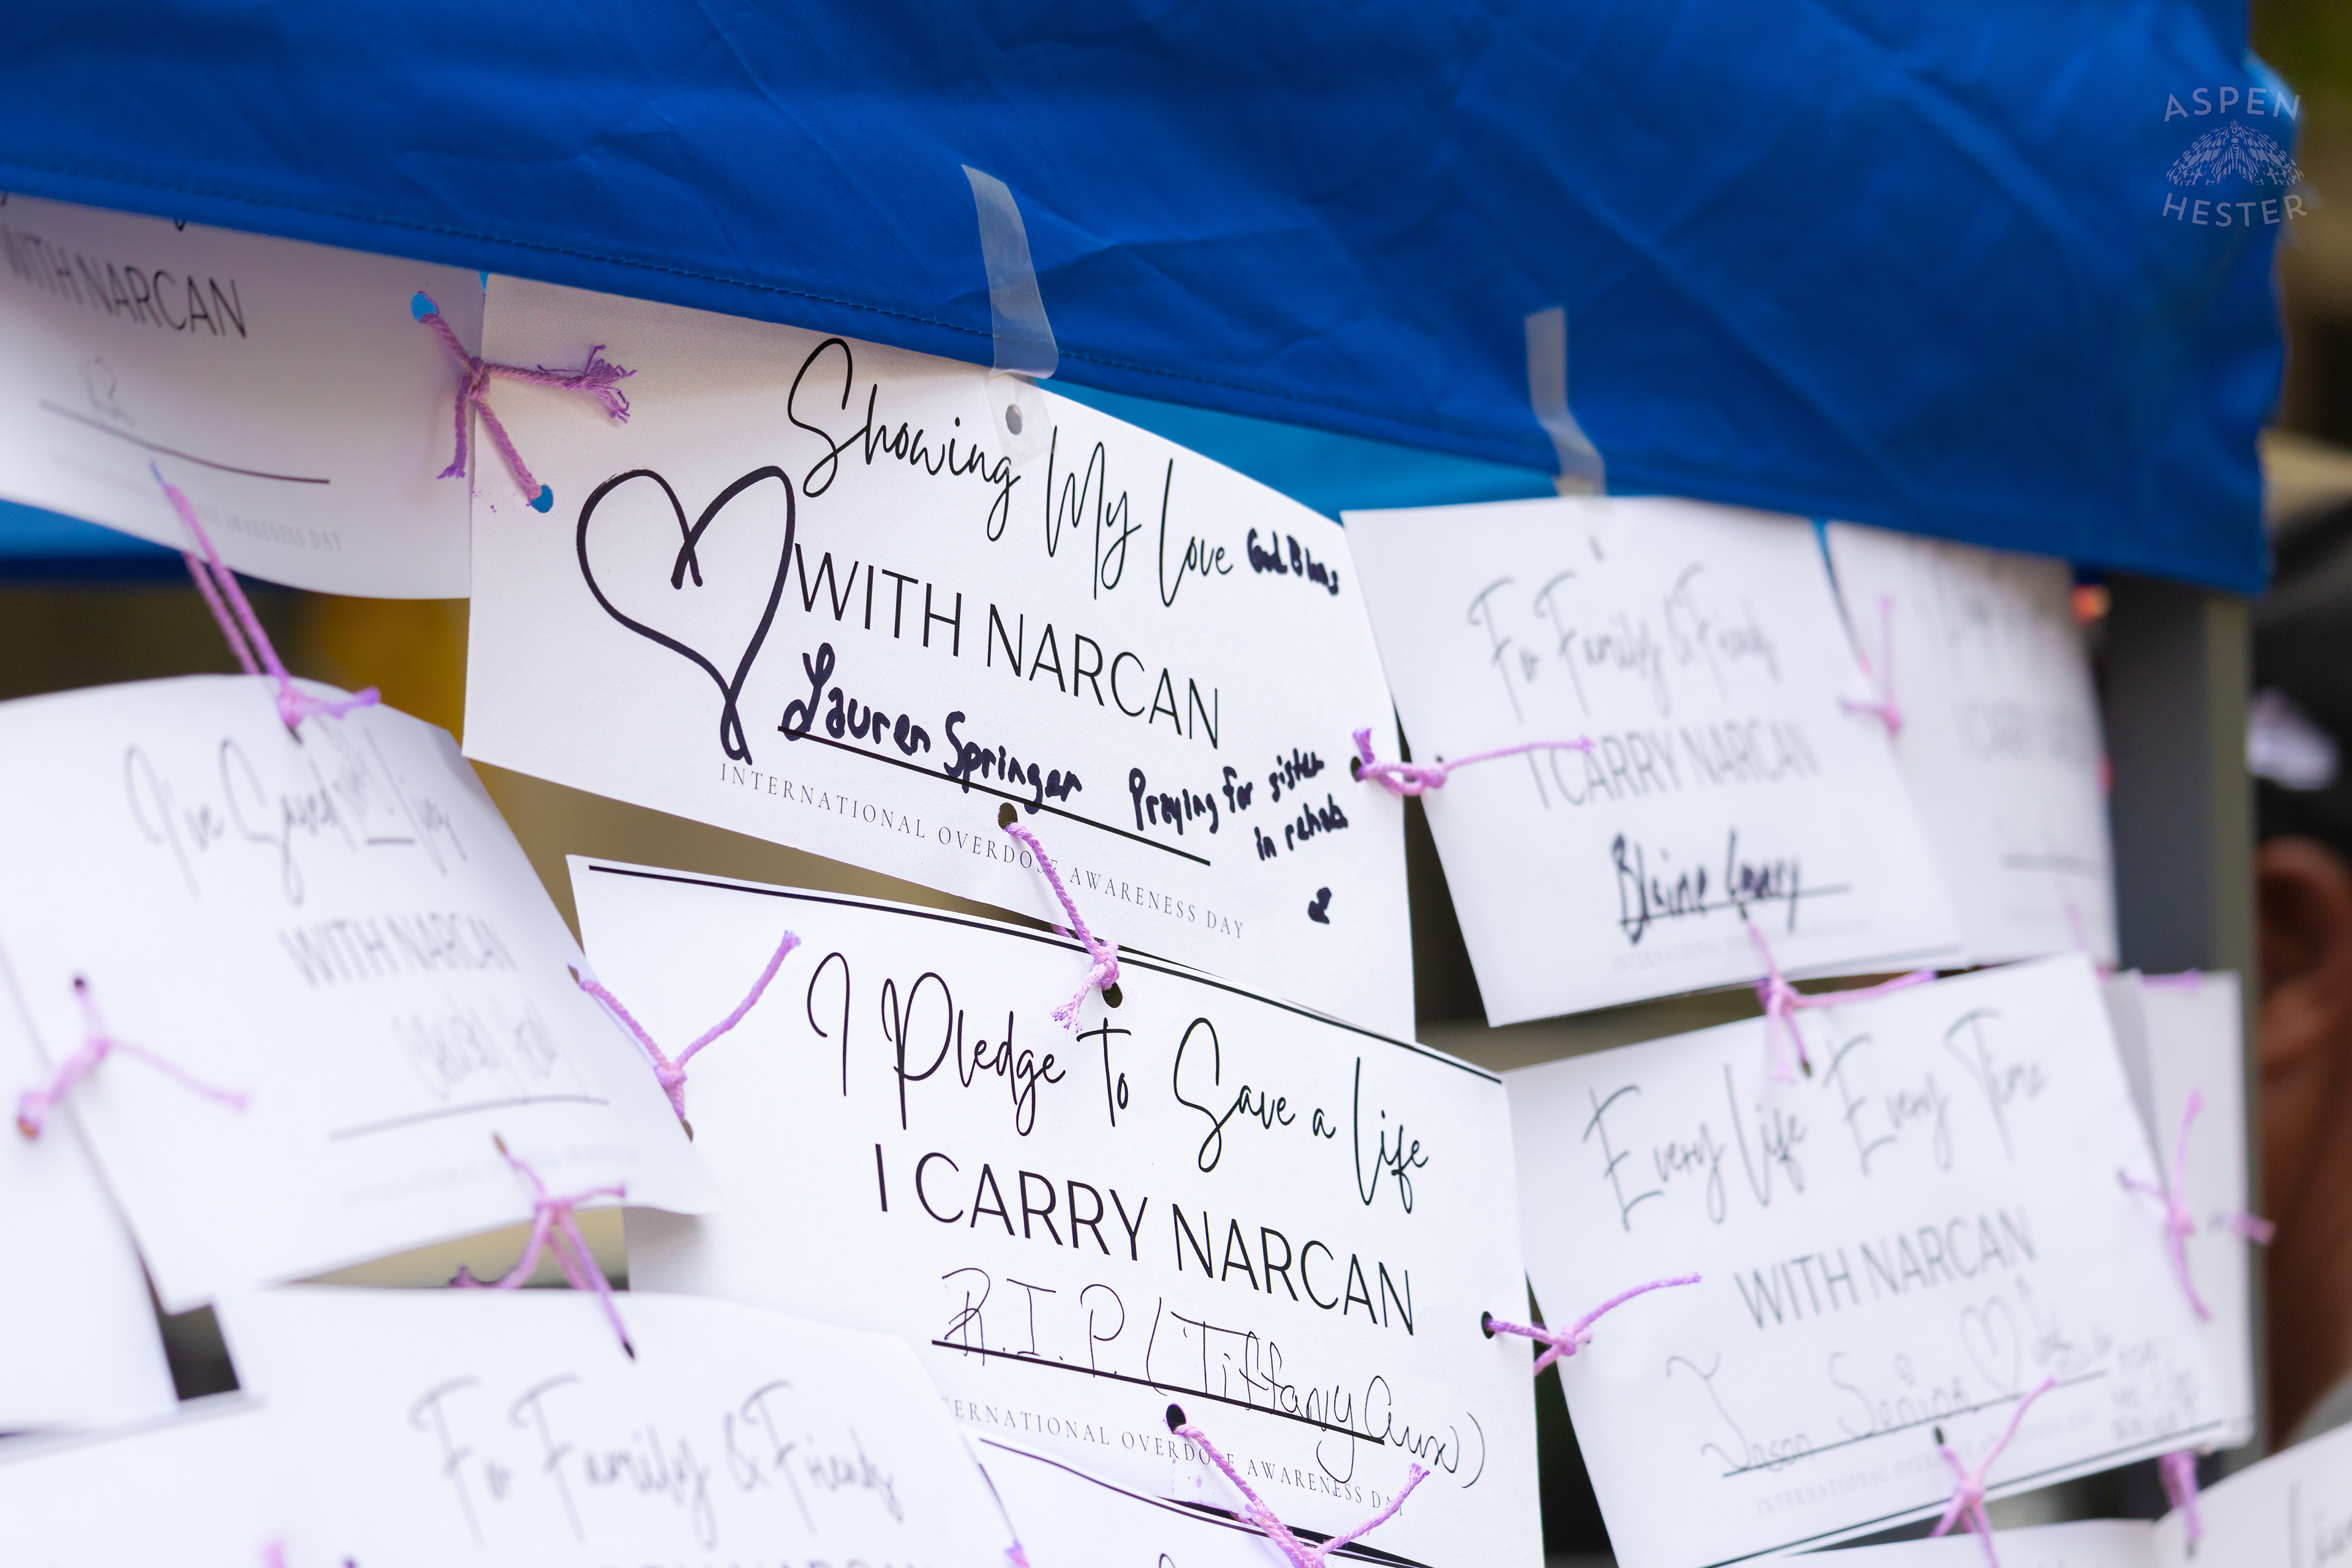 ASPEN
HESTER
WITH NARCAN
AWARENESS DAY
Showing My Love God Bless
WITH NARCAN
Lauren Springer
Praying for sister
in rehab
INTERNATIONAL OVERDOSE AWARENESS DAY
For Family & Friends
I CARRY NARCAN
Blaine
I've Saved Lives
WITH NARCAN
INTERNATIONAL
I Pledge To Save a Life
I CARRY NARCAN
R.I.P. (Tiffany
INTERNATIONAL OVERDOSE AWARENESS DAY
Every Life Every Time
WITH NARCAN
Jason Senior
INTERNATIONAL OVERDOSE AWARENESS DAY
For Family & Friends